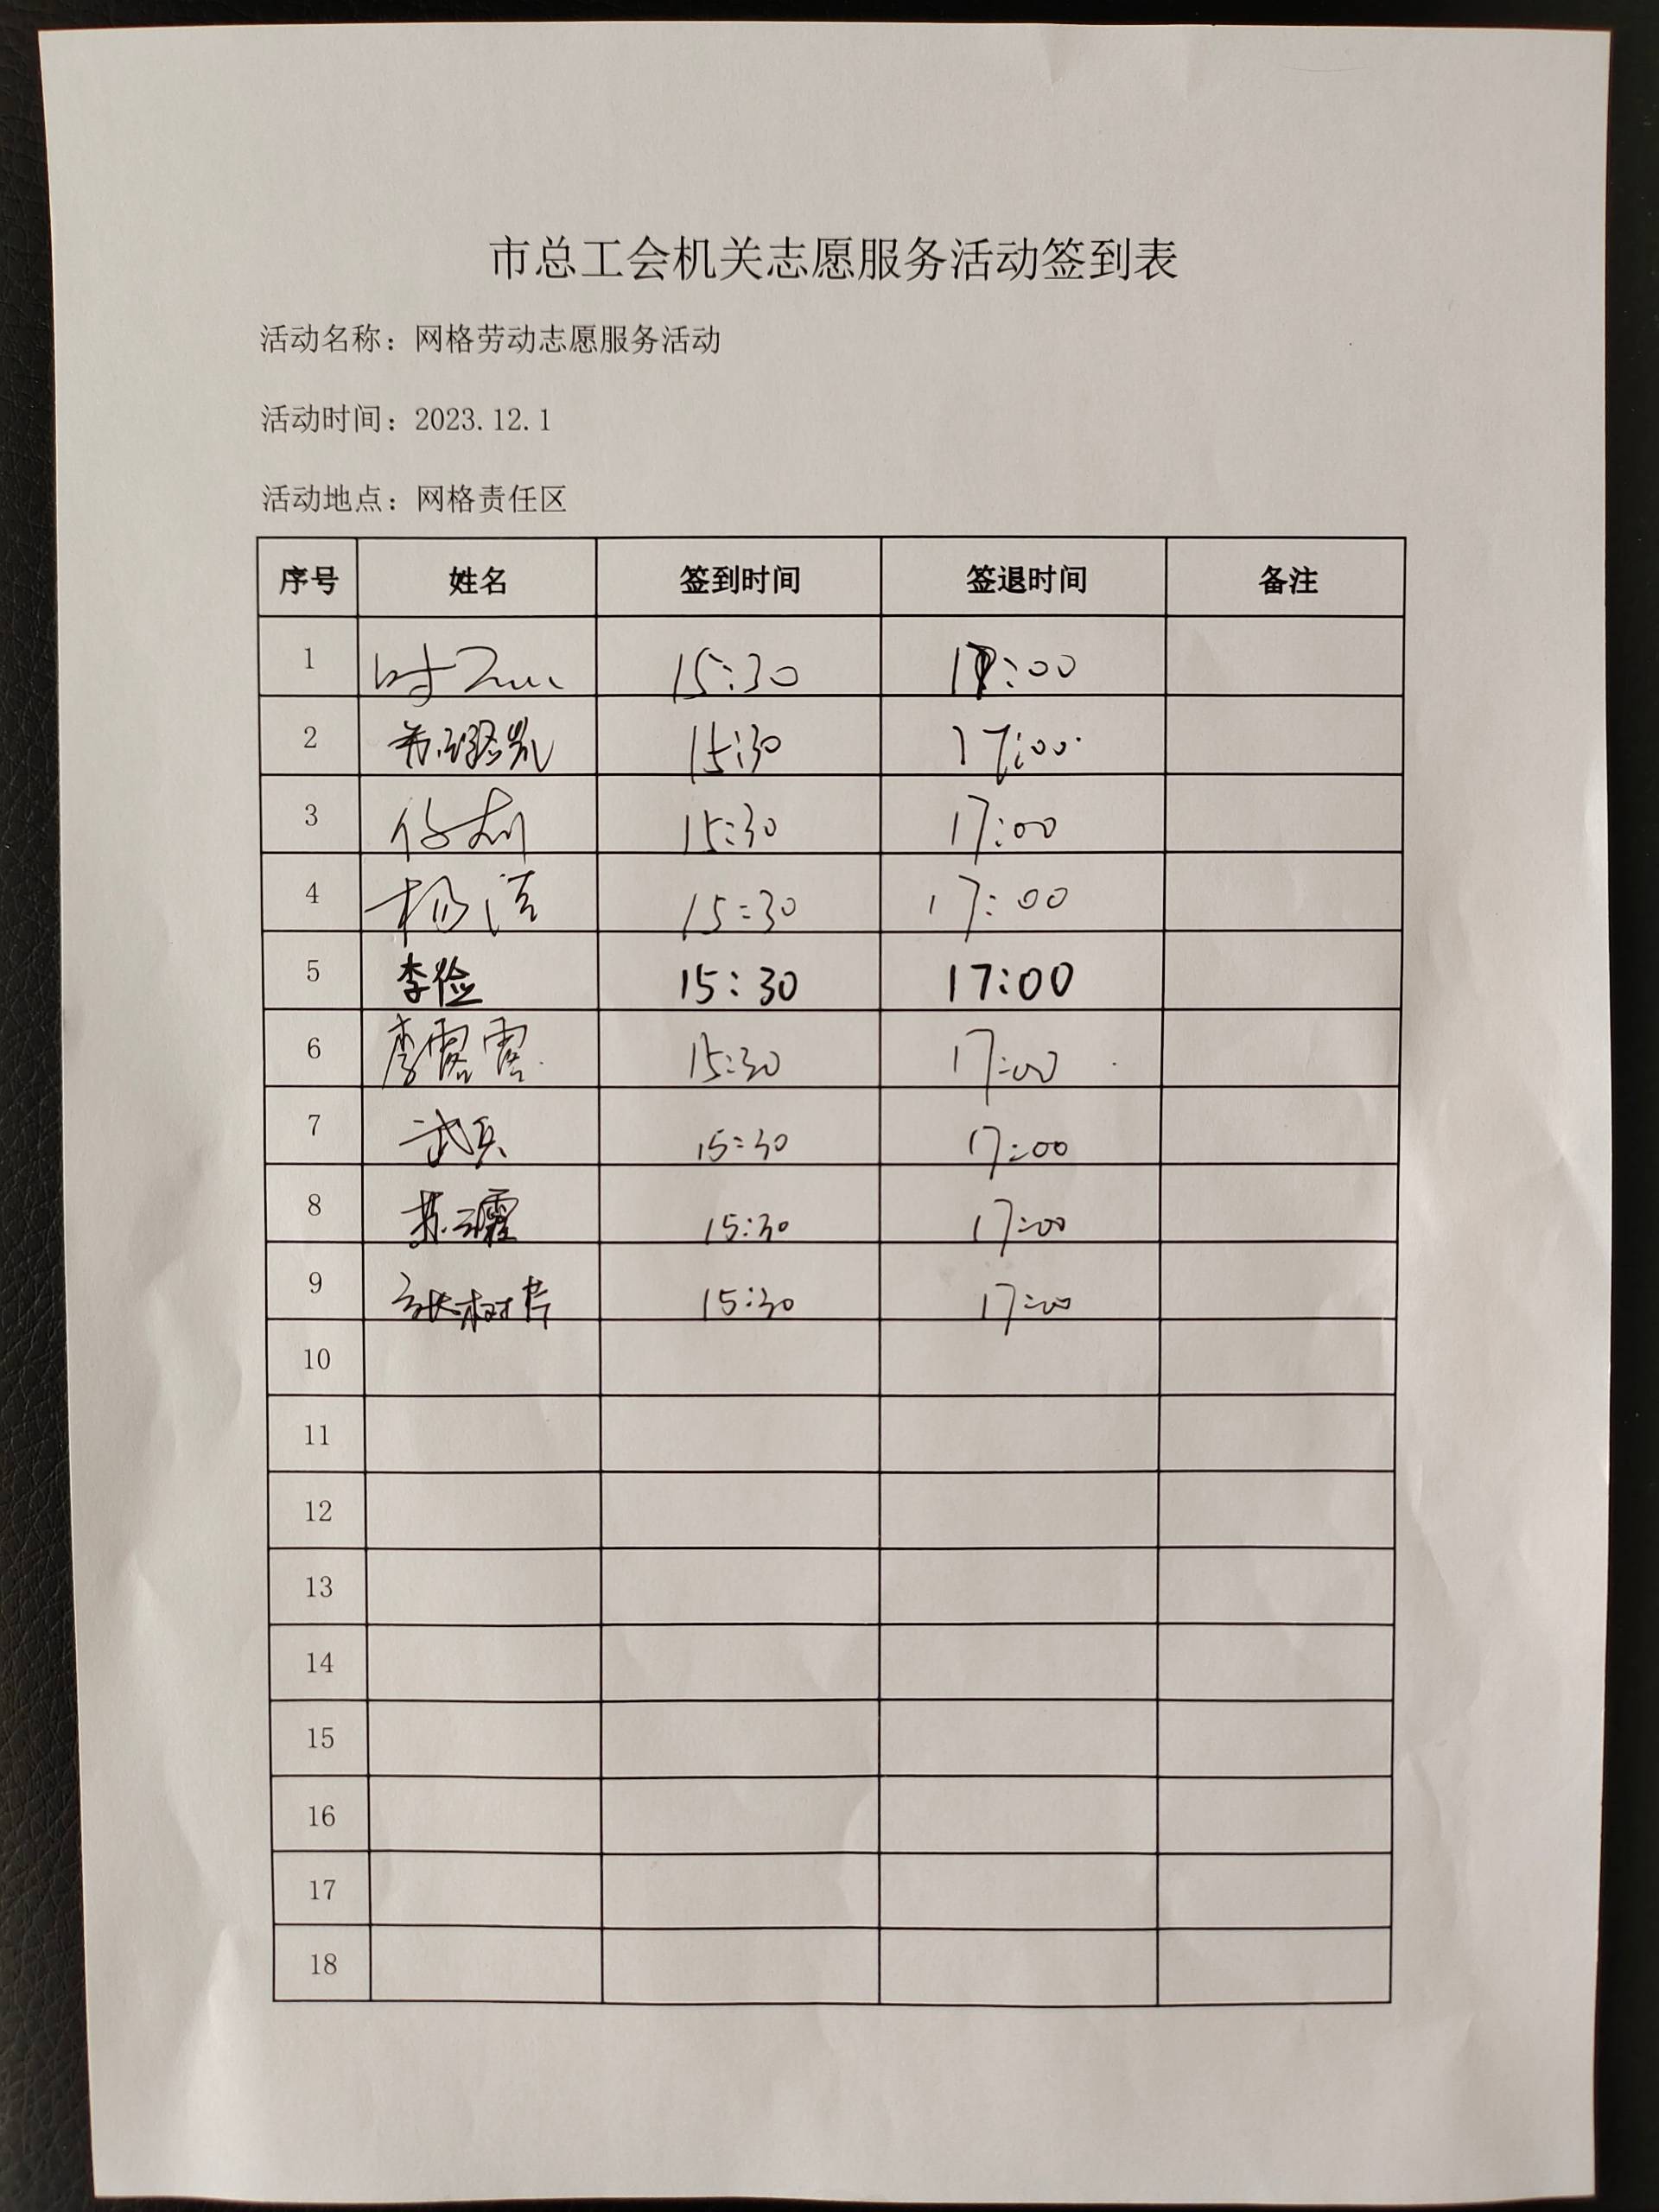 市总工会机关志愿服务活动签到表
活动名称：网格劳动志愿服务活动
活动时间：2023.12.1
活动地点：网格责任区
序号 姓名 签到时间 签退时间 备注
1 15:30 17:00
2 15:30 17:00
3 15:30 17:00
4 杨洁 15:30 17:00
5 李俭 15:30 17:00
6 李露露 15:30 17:00
7 武兵 15:30 17:00
8 15:30 17:00
9 15:30 17:00
10
11
12
13
14
15
16
17
18